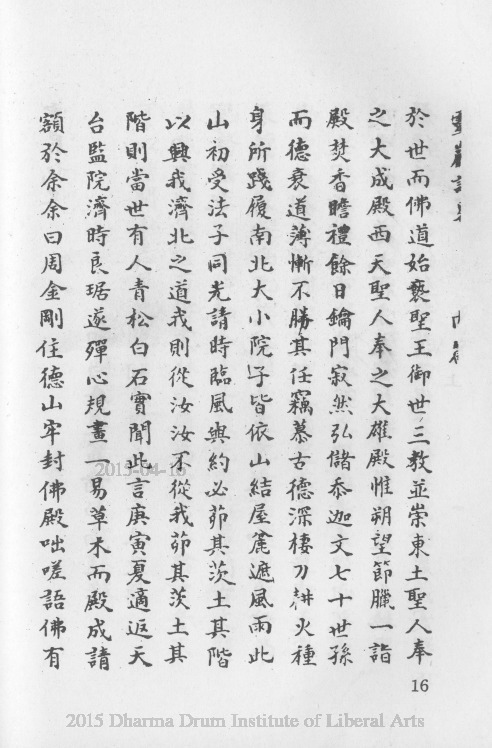 於世而佛道始褻聖王御世三教並崇東土聖人奉
之大成殿西天聖人奉之大雄殿惟朔望節臘一詣
殿焚香瞻禮餘日鑰門寂然弘儲忝迦文七十世孫
而德衰道薄慚不勝其任竊慕古德深棲刀耕火種
身所踐履南北大小院子皆依山結屋蓖遮風雨此
山初受法子同光請時臨風與約必茆其茨土其階
以興我濟北之道我則從汝汝不從我茆其茨土其
階則當世有人青松白石實聞此言庚寅夏適返天
台監院濟時良琚遂殫心規畫一易草木而殿成請
額於余余曰周金剛住德山牢封佛殿咄嗟語佛有
16
2013-04-16
2015 Dharma Drum Institute of Liberal Arts